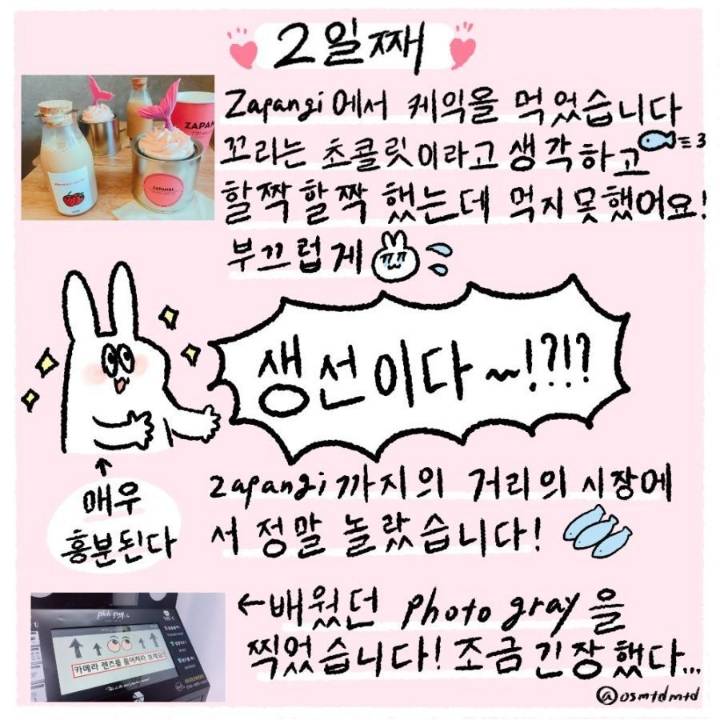 2일째
Zapangi에서 케익을 먹었습니다
꼬리는 초콜릿이라고 생각하고
할짝할짝 했는데 먹지못했어요!
부끄럽게
ZAPANGI
생선이다~!?!?
매우
흥분된다
zapangi까지의 거리의 시장에
서 정말 놀랐습니다!
←배웠던 photo gray을
찍었습니다! 조금긴장했다...
카메라 렌즈를 들여봐라 보세요!
@osmtdmtd